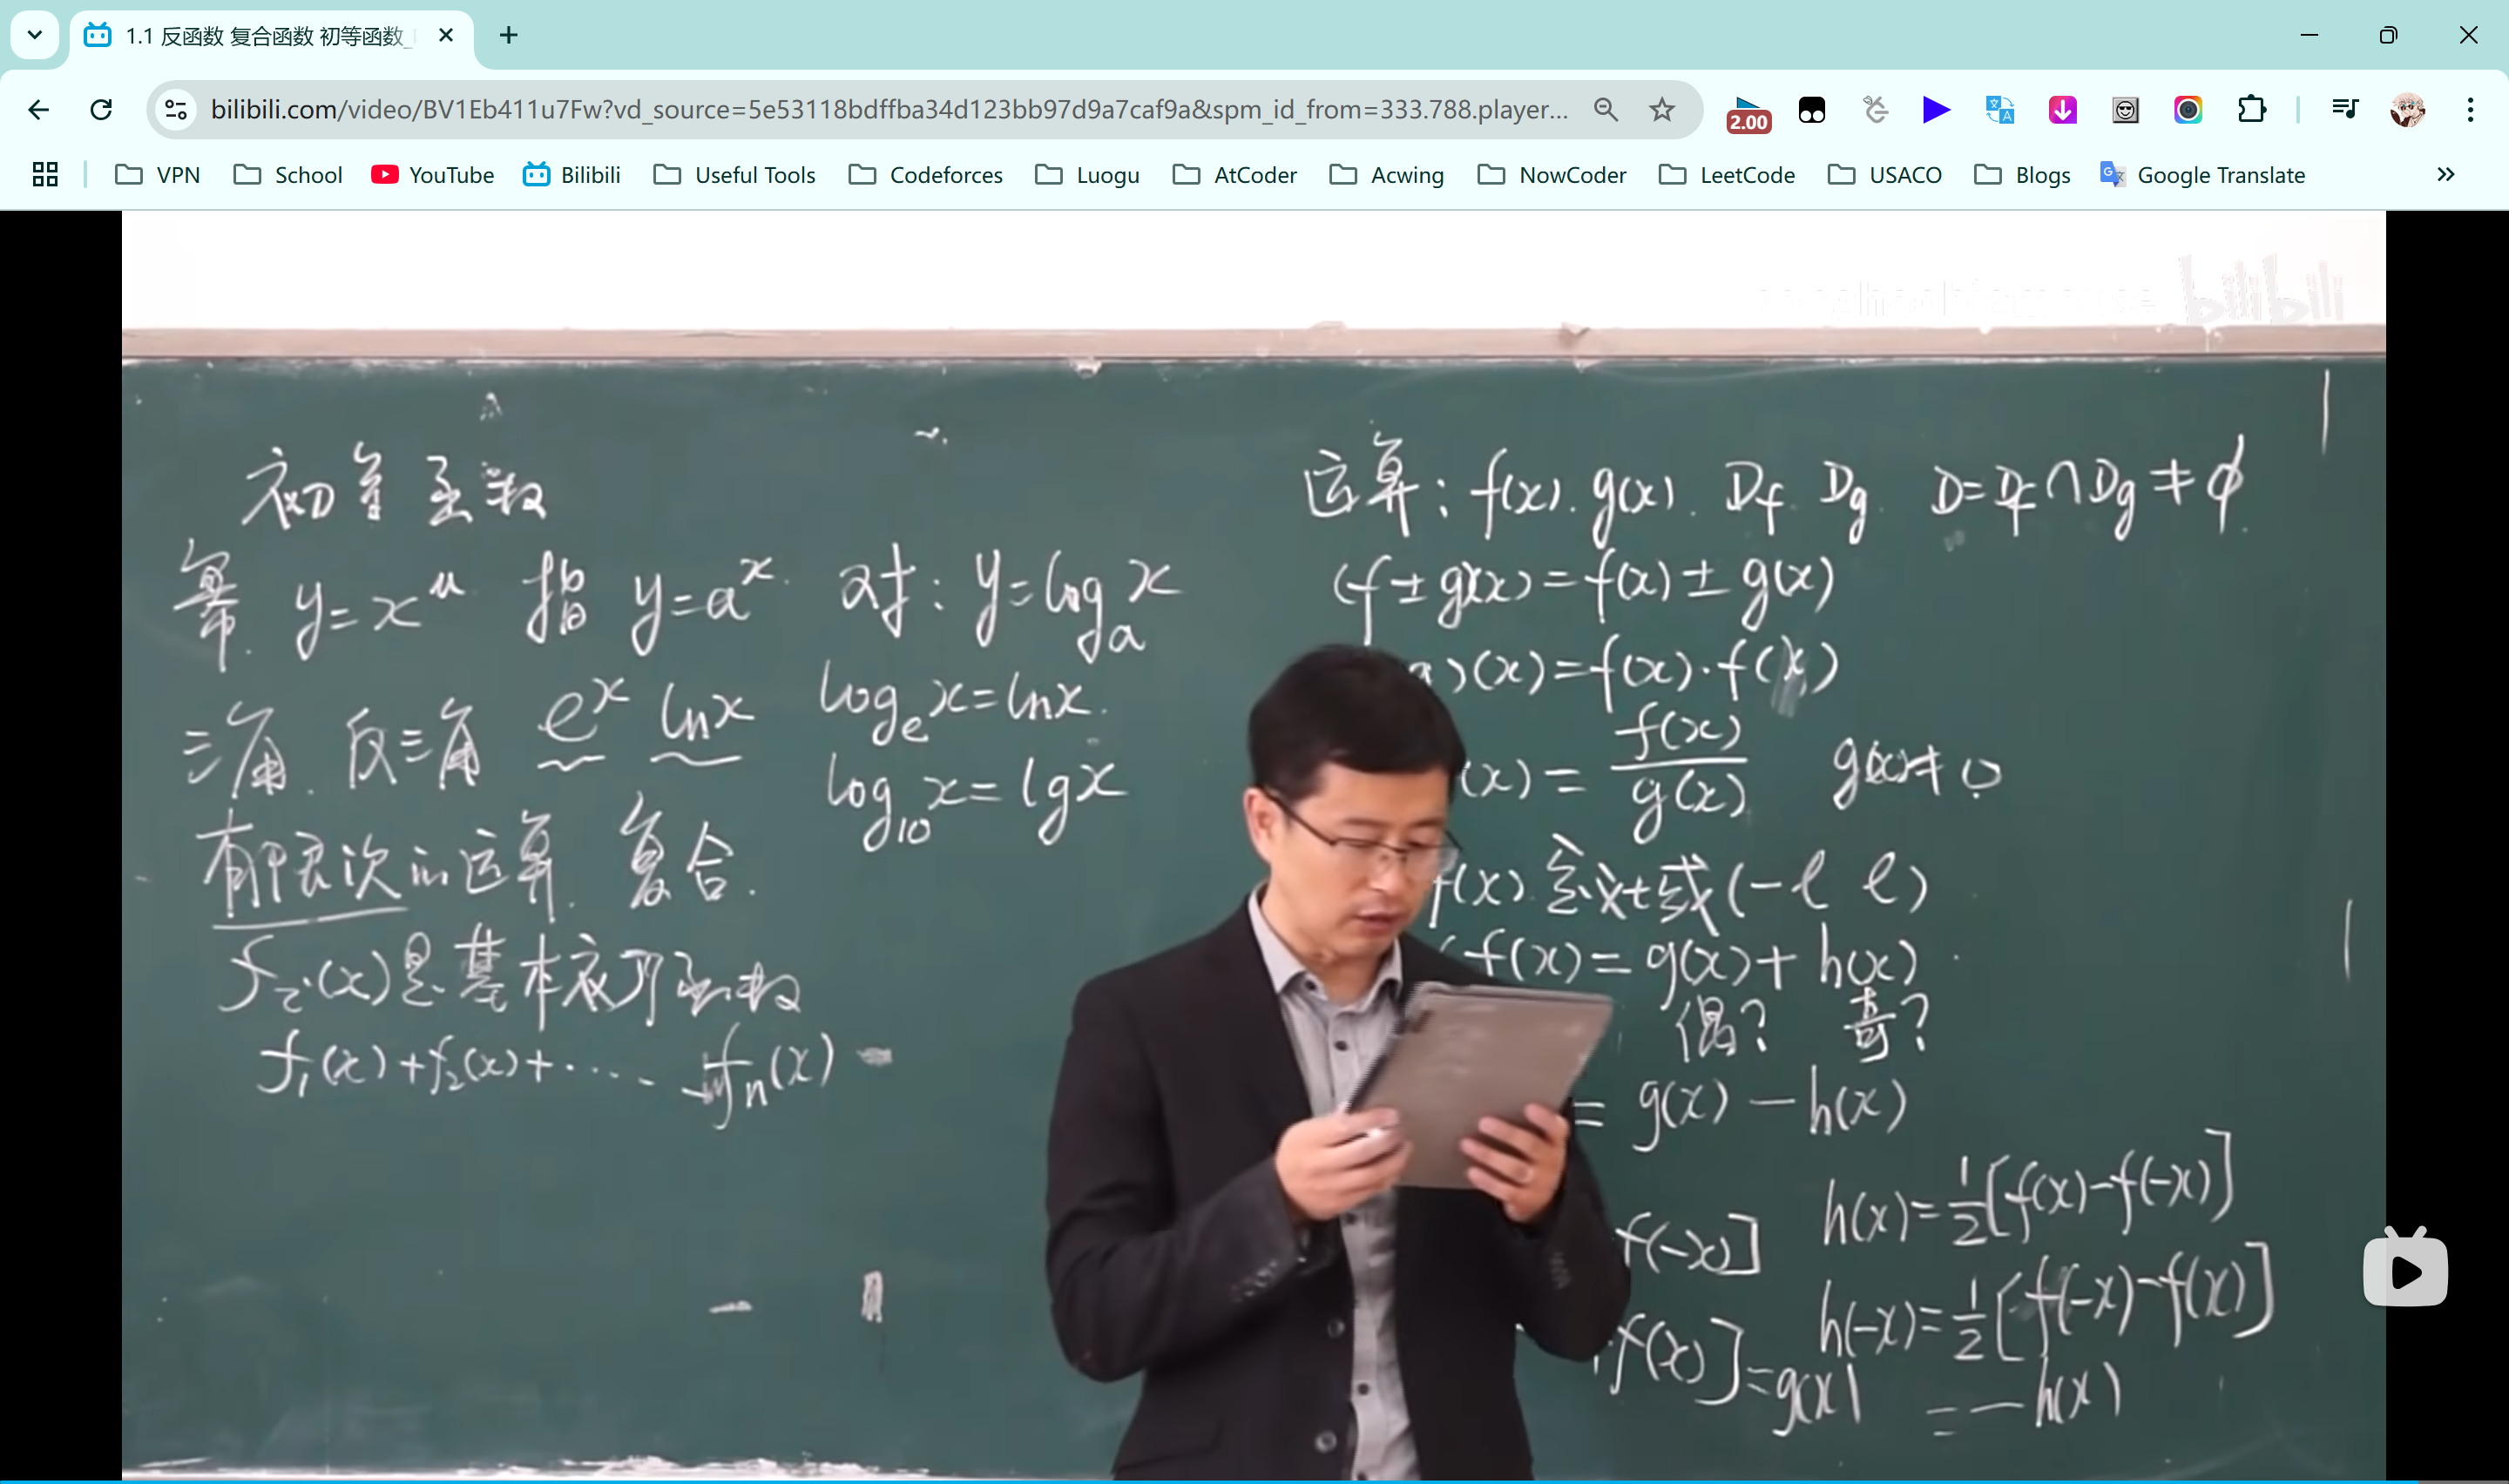 1.1 反函数 复合函数 初等函数_
bilibili.com/video/BV1Eb411u7Fw?vd_source=5e53118bdffba34d123bb97d9a7caf9a&spm_id_from=333.788.player...
2.00
VPN School YouTube Bilibili Useful Tools Codeforces Luogu AtCoder Acwing NowCoder LeetCode USACO Blogs Google Translate
bilibili
初等函数
幂. y=x^u 指 y=a^x. 对: y=log_a x
三角. 反三角 e^x ln x log_e x=ln x.
log_10 x=lg x
有限次的运算. 复合.
f_i(x)是基本初等函数
f_1(x)+f_2(x)+…. +f_n(x)
运算: f(x). g(x). D_f. D_g. D=D_f∩D_g≠ϕ.
(f±g)(x)=f(x)±g(x)
)(x)=f(x)·f(x)
(x)= f(x)/g(x) g(x)≠0
f(x). 定义域(-l l)
f(x)=g(x)+h(x).
偶? 奇?
=g(x)-h(x)
f(-x)] h(x)=1/2[f(x)-f(-x)]
h(-x)=1/2[f(-x)-f(x)]
f(x)]=g(x) =-h(x)